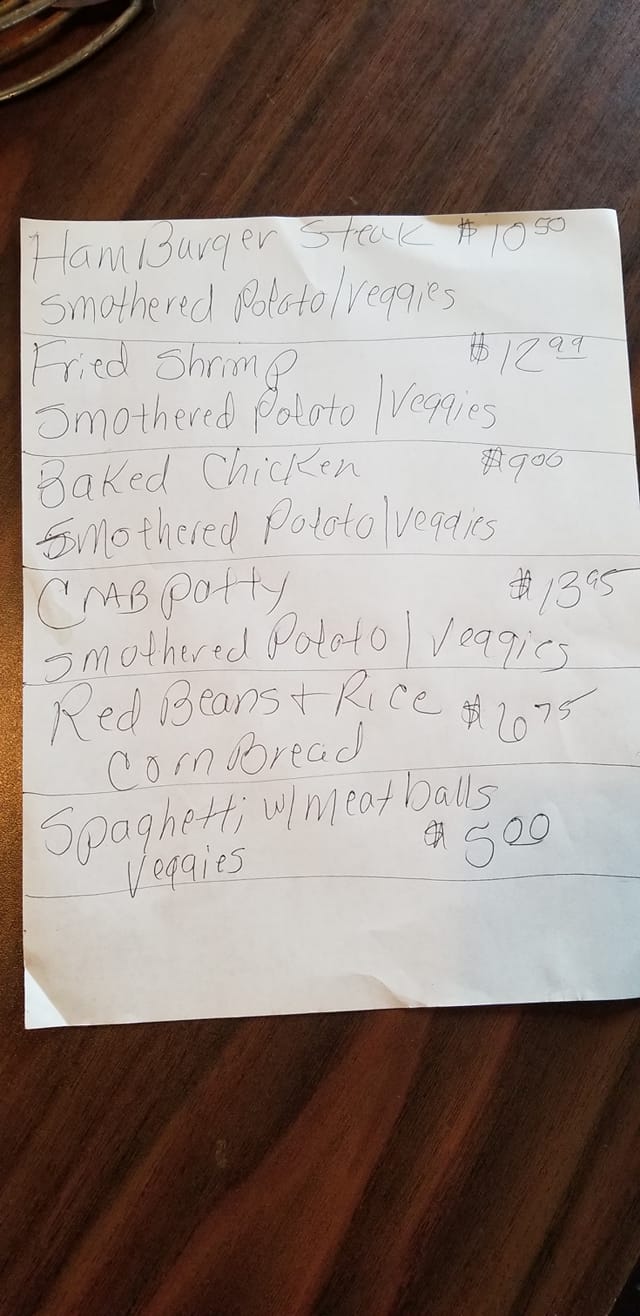 HamBurger Steak $10 50
Smothered Potato/veggies
Fried Shrimp $12 99
Smothered Potato/Veggies
Baked Chicken $9 00
Smothered Potato/veggies
CrAB patty $13 95
Smothered Potato/Veggies
Red Beans + Rice $6 75
Corn Bread
Spaghetti w/meatballs
Veggies $5 00